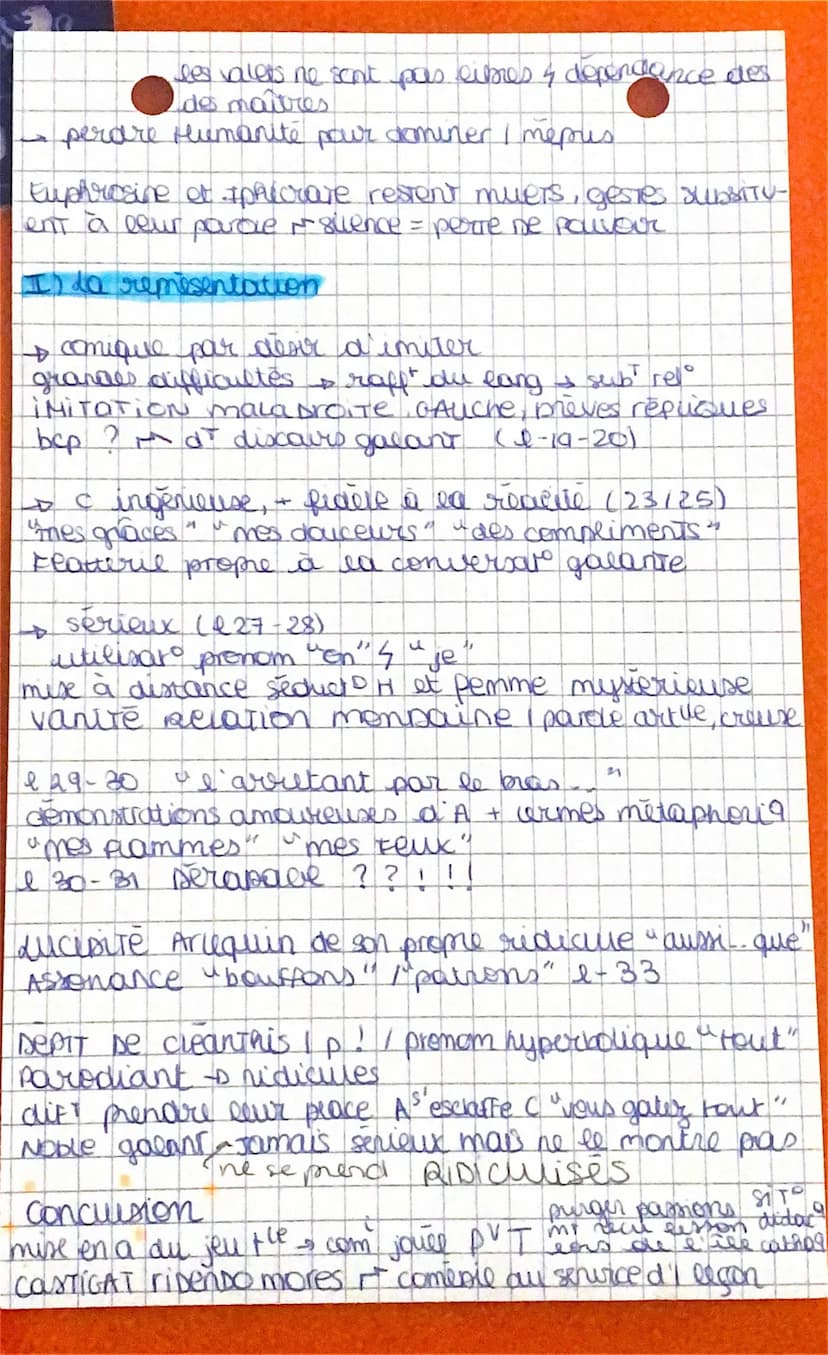 les valets ne sont pas libres ↯ dépendance des
des maîtres
→ perdre Humanité pour dominer / mépris
Euphrosine et Iphicrate restent muets, gestes substitu-
ent à leur parole ↦ silence = perte de pouvoir
II) La représentation
→ comique par désir d'imiter
grandes difficultés → raff^t du lang → sub^t rel°
iMiTATiON maladroite, gauche, brèves répliques
bcp ? ↦ d^t discours galant (l-19-20)
→ C ingénieuse, + fidèle à la réalité (23/25)
"mes grâces" "mes douceurs" "des compliments"
Flatterie propre à la conversat° galante
→ sérieux (l27-28)
utilisat° prenom "on" ↯ "je"
mise à distance séduct° H et femme mystérieuse
vanité relation mondaine / parole art^lle, creuse
l 29-30 "l'arretant par le bras..."
démonstrations amoureuses d'A + armes métaphoriq
"mes flammes" "mes feux"
l 30-31 DÉRAPAGE ??!!!
LUCIDITÉ Arlequin de son propre ridicule "aussi..que"
Assonance "bouffons" / "patrons" l-33
DÉPIT DE Cléanthis / p! / prenom hyperbolique "tout"
Parodiant → ridicules
diff prendre leur place A s'esclaffe C "vous gatez tout"
Noble galant jamais sérieux mais ne le montre pas
ne se prend RiDiCULiSÉS
Conclusion
purger passions SIT°
mise en a du jeu t^le → com^i jouée PVT
didac
CASTIGAT RIDENDO MORES ↦ comédie au service d'1 leçon